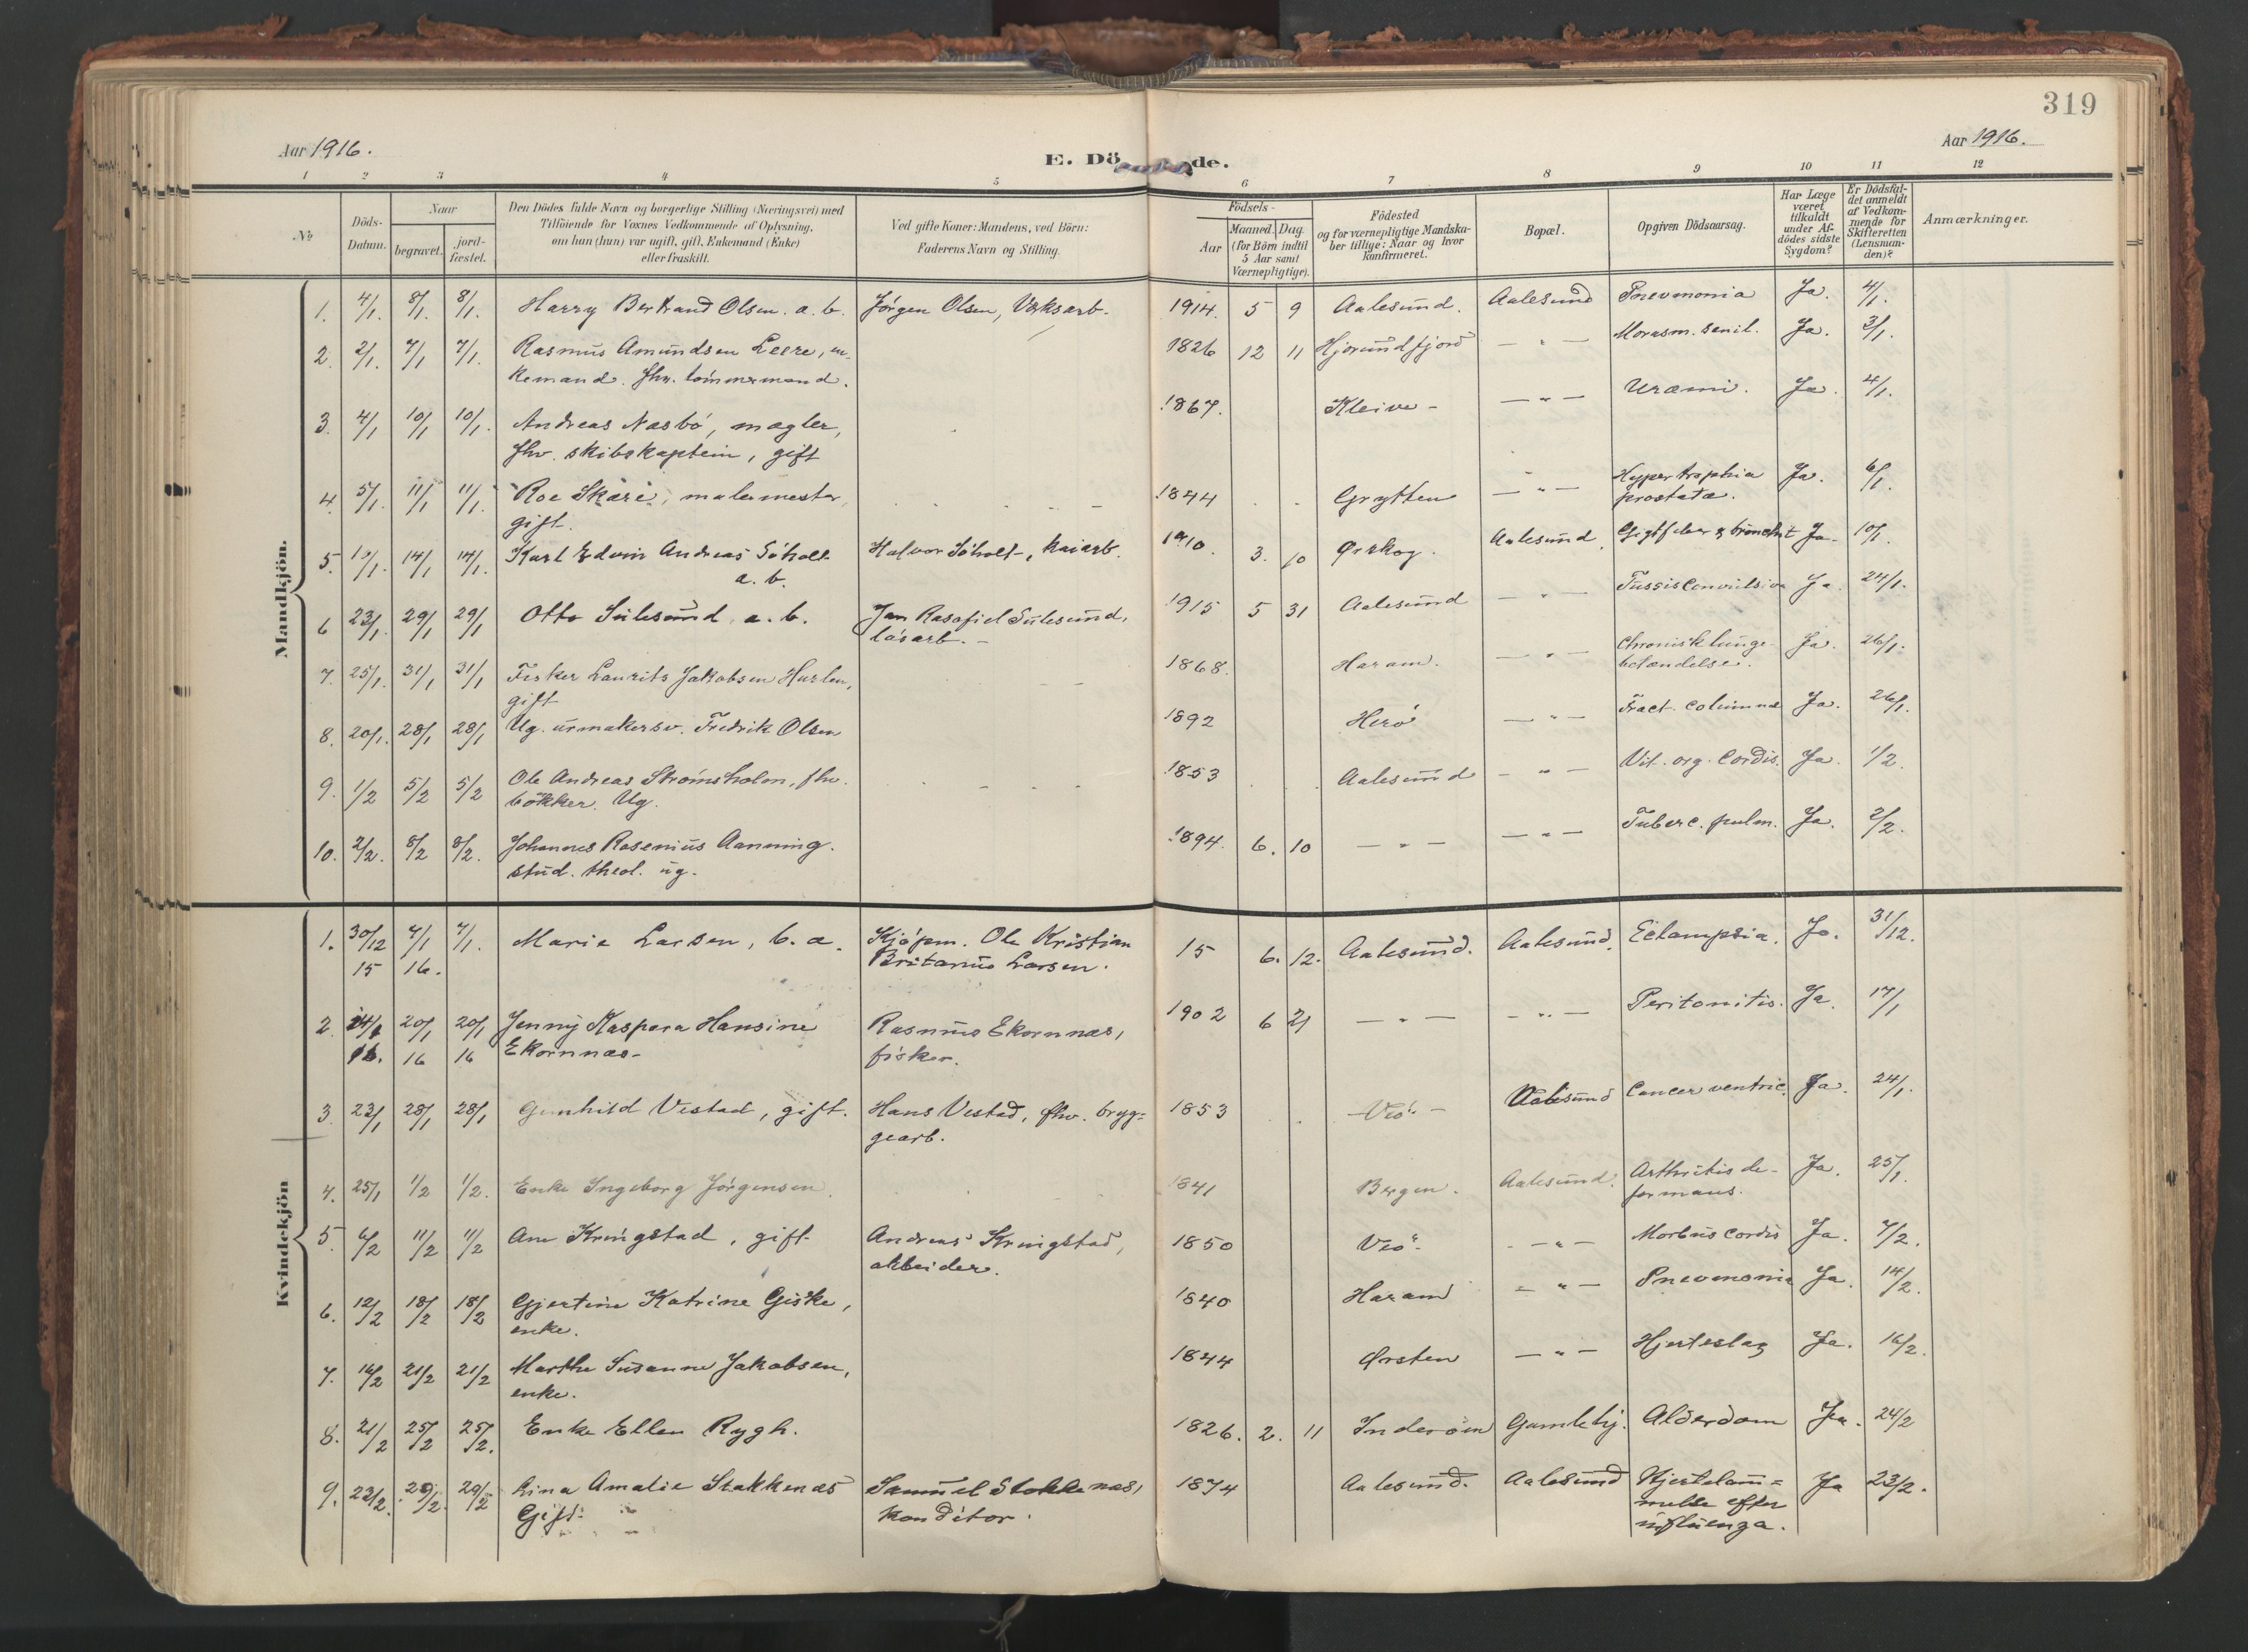 319
Aar 1916.
Aar 1916.
E. Dö de.
1 2 3 4 5 6 7 8 9 10 11 12
No
Döds-Datum.
Naar
begravet.
jord-fæstet.
Den Dödes fulde Navn og borgerlige Stilling (Næringsvei) med
Tilföiende for Voxnes Vedkommende af Oplysning,
om han (hun) var ugift, gift, Enkemand (Enke)
eller fraskilt.
Ved gifte Koner: Mandens, ved Börn:
Faderens Navn og Stilling.
Födsels-
Aar
Maaned. Dag.
(for Börn indtil
5 Aar samt
Værnepligtige).
Födested
og for værnepligtige Mandska-
ber tillige: Naar og hvor
konfirmeret.
Bopæl.
Opgiven Dödsaarsag.
Har Læge
været
tilkaldt
under Af-
dödes sidste
Sygdom?
Er Dödsfal-
det anmeldt
af Vedkom-
mende for
Skifteretten
(Lensman-
den)?
Anmærkninger.
Mandkjön.
1. 4/1. 8/1. 8/1. Harry Bertrand Olsen. a. b. Jörgen Olsen, Værksarb. 1914. 5 9 Aalesund. Aalesund Pnevmonia Ja. 4/1.
2. 2/1. 7/1 7/1. Rasmus Amundsen Leere, en- 1826 12 11 Hjorundfjord — " — Morasm. senil. Ja. 3/1.
kemand. fhv. tömmermand.
3. 4/1 10/1 10/1. Andreas Næsbö, mægler, 1867. Kleive - — " — Uræmi. Ja. 4/1.
fhv. skibskaptein, gift
4. 5/1. 11/1 11/1. Roe Skare, malermester, 1844 Grytten — " — Hypertrophia Ja. 6/1.
gift. prostatæ.
5. 14/1 14/1. Karl Edvin Andreas Söholt Halvor Söholt, kaiarb. 1910. 3. 10 Ørskog. Aalesund. Gigtfeber & Ja. 10/1.
a. b.
6 23/1. 29/1 29/1 Otto Sulesund, a. b. Jan Sulesund, 1915 5 31 Aalesund — " — Tussis Convulsiva Ja. 24/1.
løsarb. -
7. 25/1. 31/1 31/1 Fisker Laurits Jakobsen Hurlen, 1868. Haram. — " — Chronisk lunge- Ja. 26/1.
gift betændelse.
8. 20/1. 28/1 28/1 Ug. urmakersv. Fredrik Olsen 1892 Herö — " — Fract. columnæ Ja. 26/1.
9. 1/2 5/2 5/2 Ole Andreas Strömsholm, fhv. 1853 Aalesund — " — Vit. org. Cordis. Ja. 1/2.
bökker. Ug.
10. 2/2. 8/2 8/2. Johannes Rosenius Aanning. 1894. 6. 10 — " — — " — Tuberc. pulm. Ja. 2/2.
stud. theol. ug.
Kvindekjön
1. 30/12 7/1 7/1. Marie Larsen, b. a. Kjöpm. Ole Kristian 15 6. 12. Aalesund. Aalesund. Eclampsia. Ja. 31/12.
15 16. Britanus Larsen.
2. 14/1 20/1 20/1 Jenny Kaspara Hansine Rasmus Ekornnæs, 1902 6 21 — " — — " — Peritonitis. Ja. 17/1
16. 16 16 Ekornnæs- fisker.
3. 23/1 28/1 28/1 Gunhild Vestad, gift. Hans Vestad, fhv. bryg- 1853 Veö - Aalesund Cancer ventric. Ja. 24/1.
gearb.
4. 25/1 1/2 1/2. Enke Ingeborg Jörgensen. 1841 Bergen. Aalesund. Arthritis de- Ja. 25/1.
formans.
5. 6/2 11/2 11/2 Ane Kringstad, gift. Andreas Kringstad, 1850 Veö. — " — Morbus Cordis Ja. 7/2.
arbeider.
6. 12/2 18/2 18/2 Gjertine Katrine Giske, 1840 Haram — " — Pnevmonia Ja. 14/2.
enke.
7. 16/2 21/2 21/2 Marthe Susanne Jakobsen, 1844 Ørsten — " — Hjerteslag Ja. 16/2.
enke.
8. 21/2 25/2 25/2. Enke Ellen Rygh. 1826. 2. 11 Inderöen Gamlehj. Alderdom Ja. 24/2
9. 23/2. 29/2. 29/2 Lina Amalie Stokkenæs Samuel Stokkenæs, 1874 Aalesund. Aalesund Hjertelam= Ja 23/2.
Gift. konditor. melse efter
influenza.